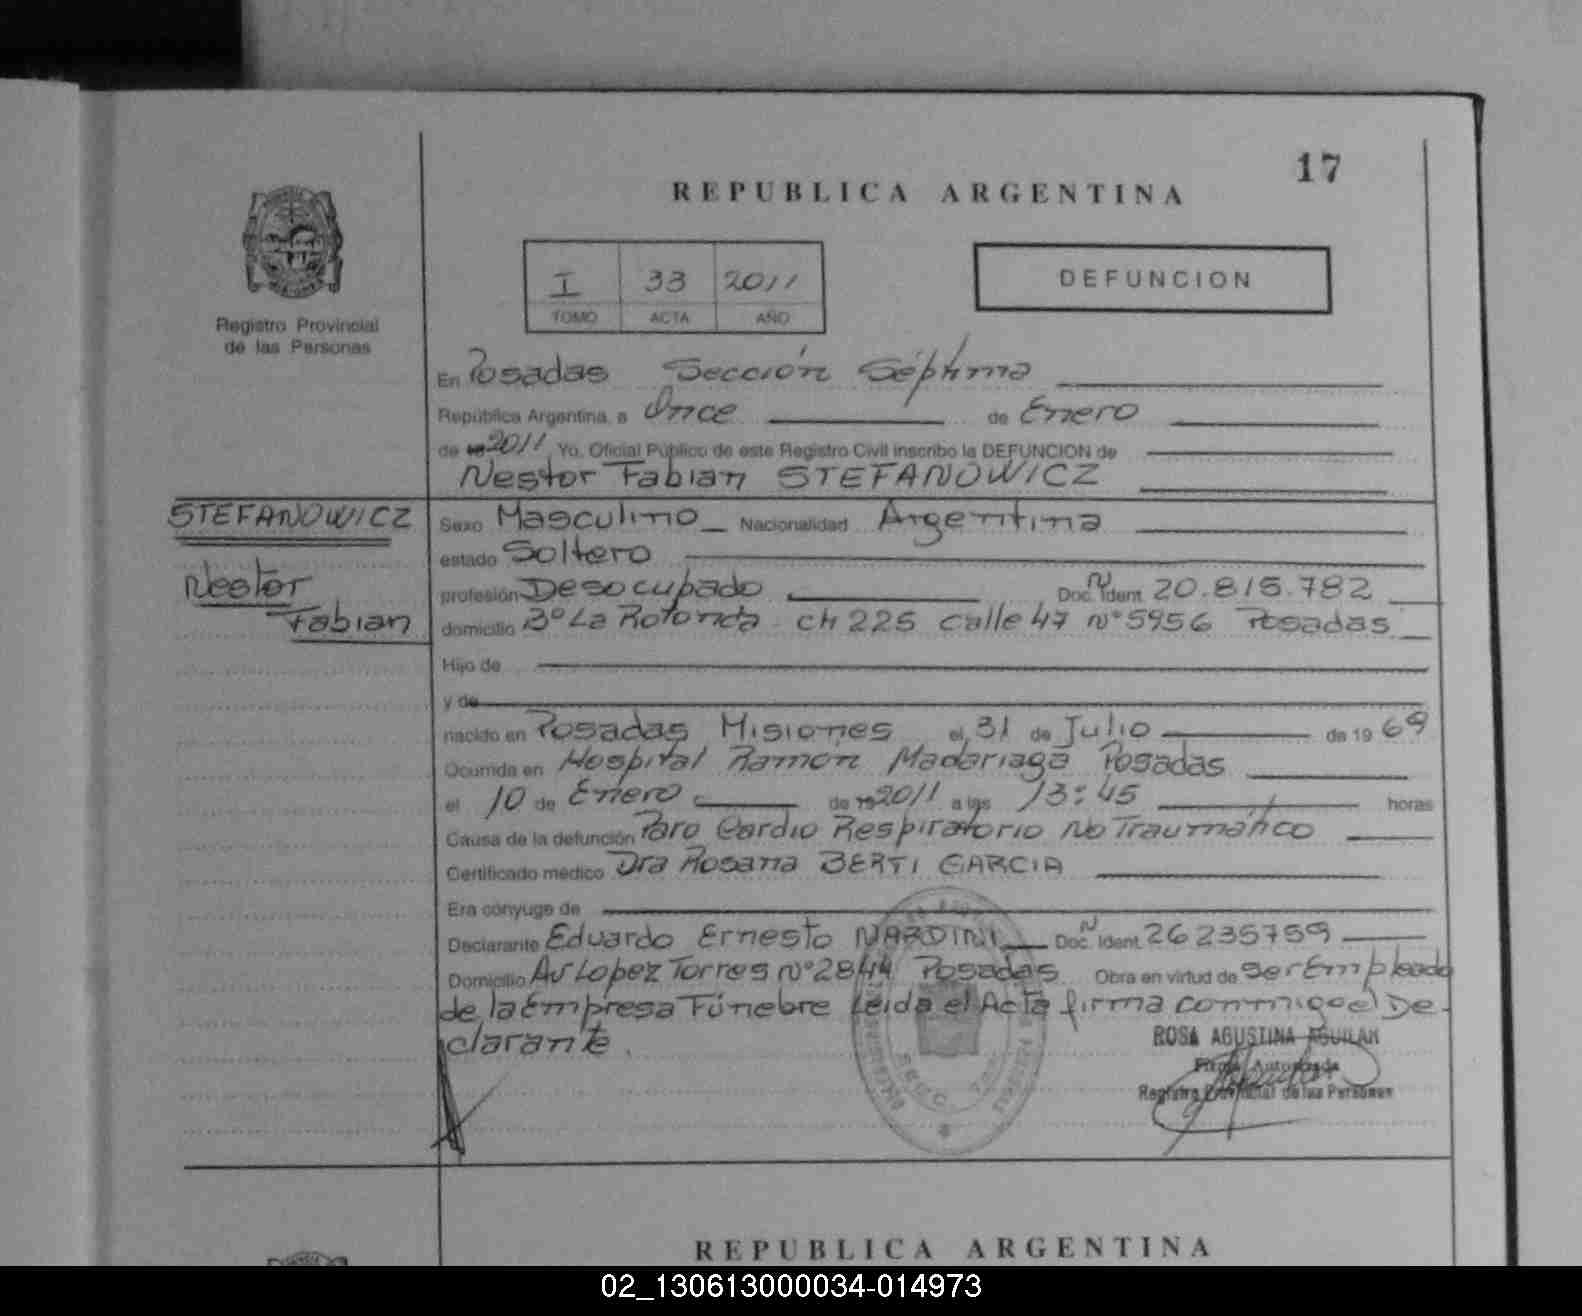 17
REPUBLICA ARGENTINA
I 33 2011
TOMO ACTA AÑO
DEFUNCION
Registro Provincial
de las Personas
En Posadas Sección Séptima
República Argentina, a Once de Enero
de 19 2011 Yo, Oficial Público de este Registro Civil inscribo la DEFUNCION de
Nestor Fabian STEFANOWICZ
STEFANOWICZ
Nestor
Fabian
Sexo Masculino Nacionalidad Argentina
estado Soltero
profesión Desocupado Doc. N Ident 20.815.782
domicilio Bº La Rotonda ch 225 calle 47 nº 5956 Posadas
Hijo de
y de
nacido en Posadas Misiones el 31 de Julio de 19 69
Ocurrida en Hospital Ramón Madariaga Posadas
el 10 de Enero de 19 2011 a las 13:45 horas
Causa de la defunción Paro Cardio Respiratorio No Traumático
Certificado médico Dra Rosana BERTI GARCIA
Era cónyuge de
Declarante Eduardo Ernesto NARDINI Doc. N Ident 26235759
Domicilio Av Lopez Torres nº 2844 Posadas Obra en virtud de ser Empleado
de la Empresa Fúnebre Leida el Acta firma conmigo el De-
clarante.
ROSA AGUSTINA AGUILAR
Firma Autorizada
Registro Provincial de las Personas
REPUBLICA ARGENTINA
02_130613000034-014973